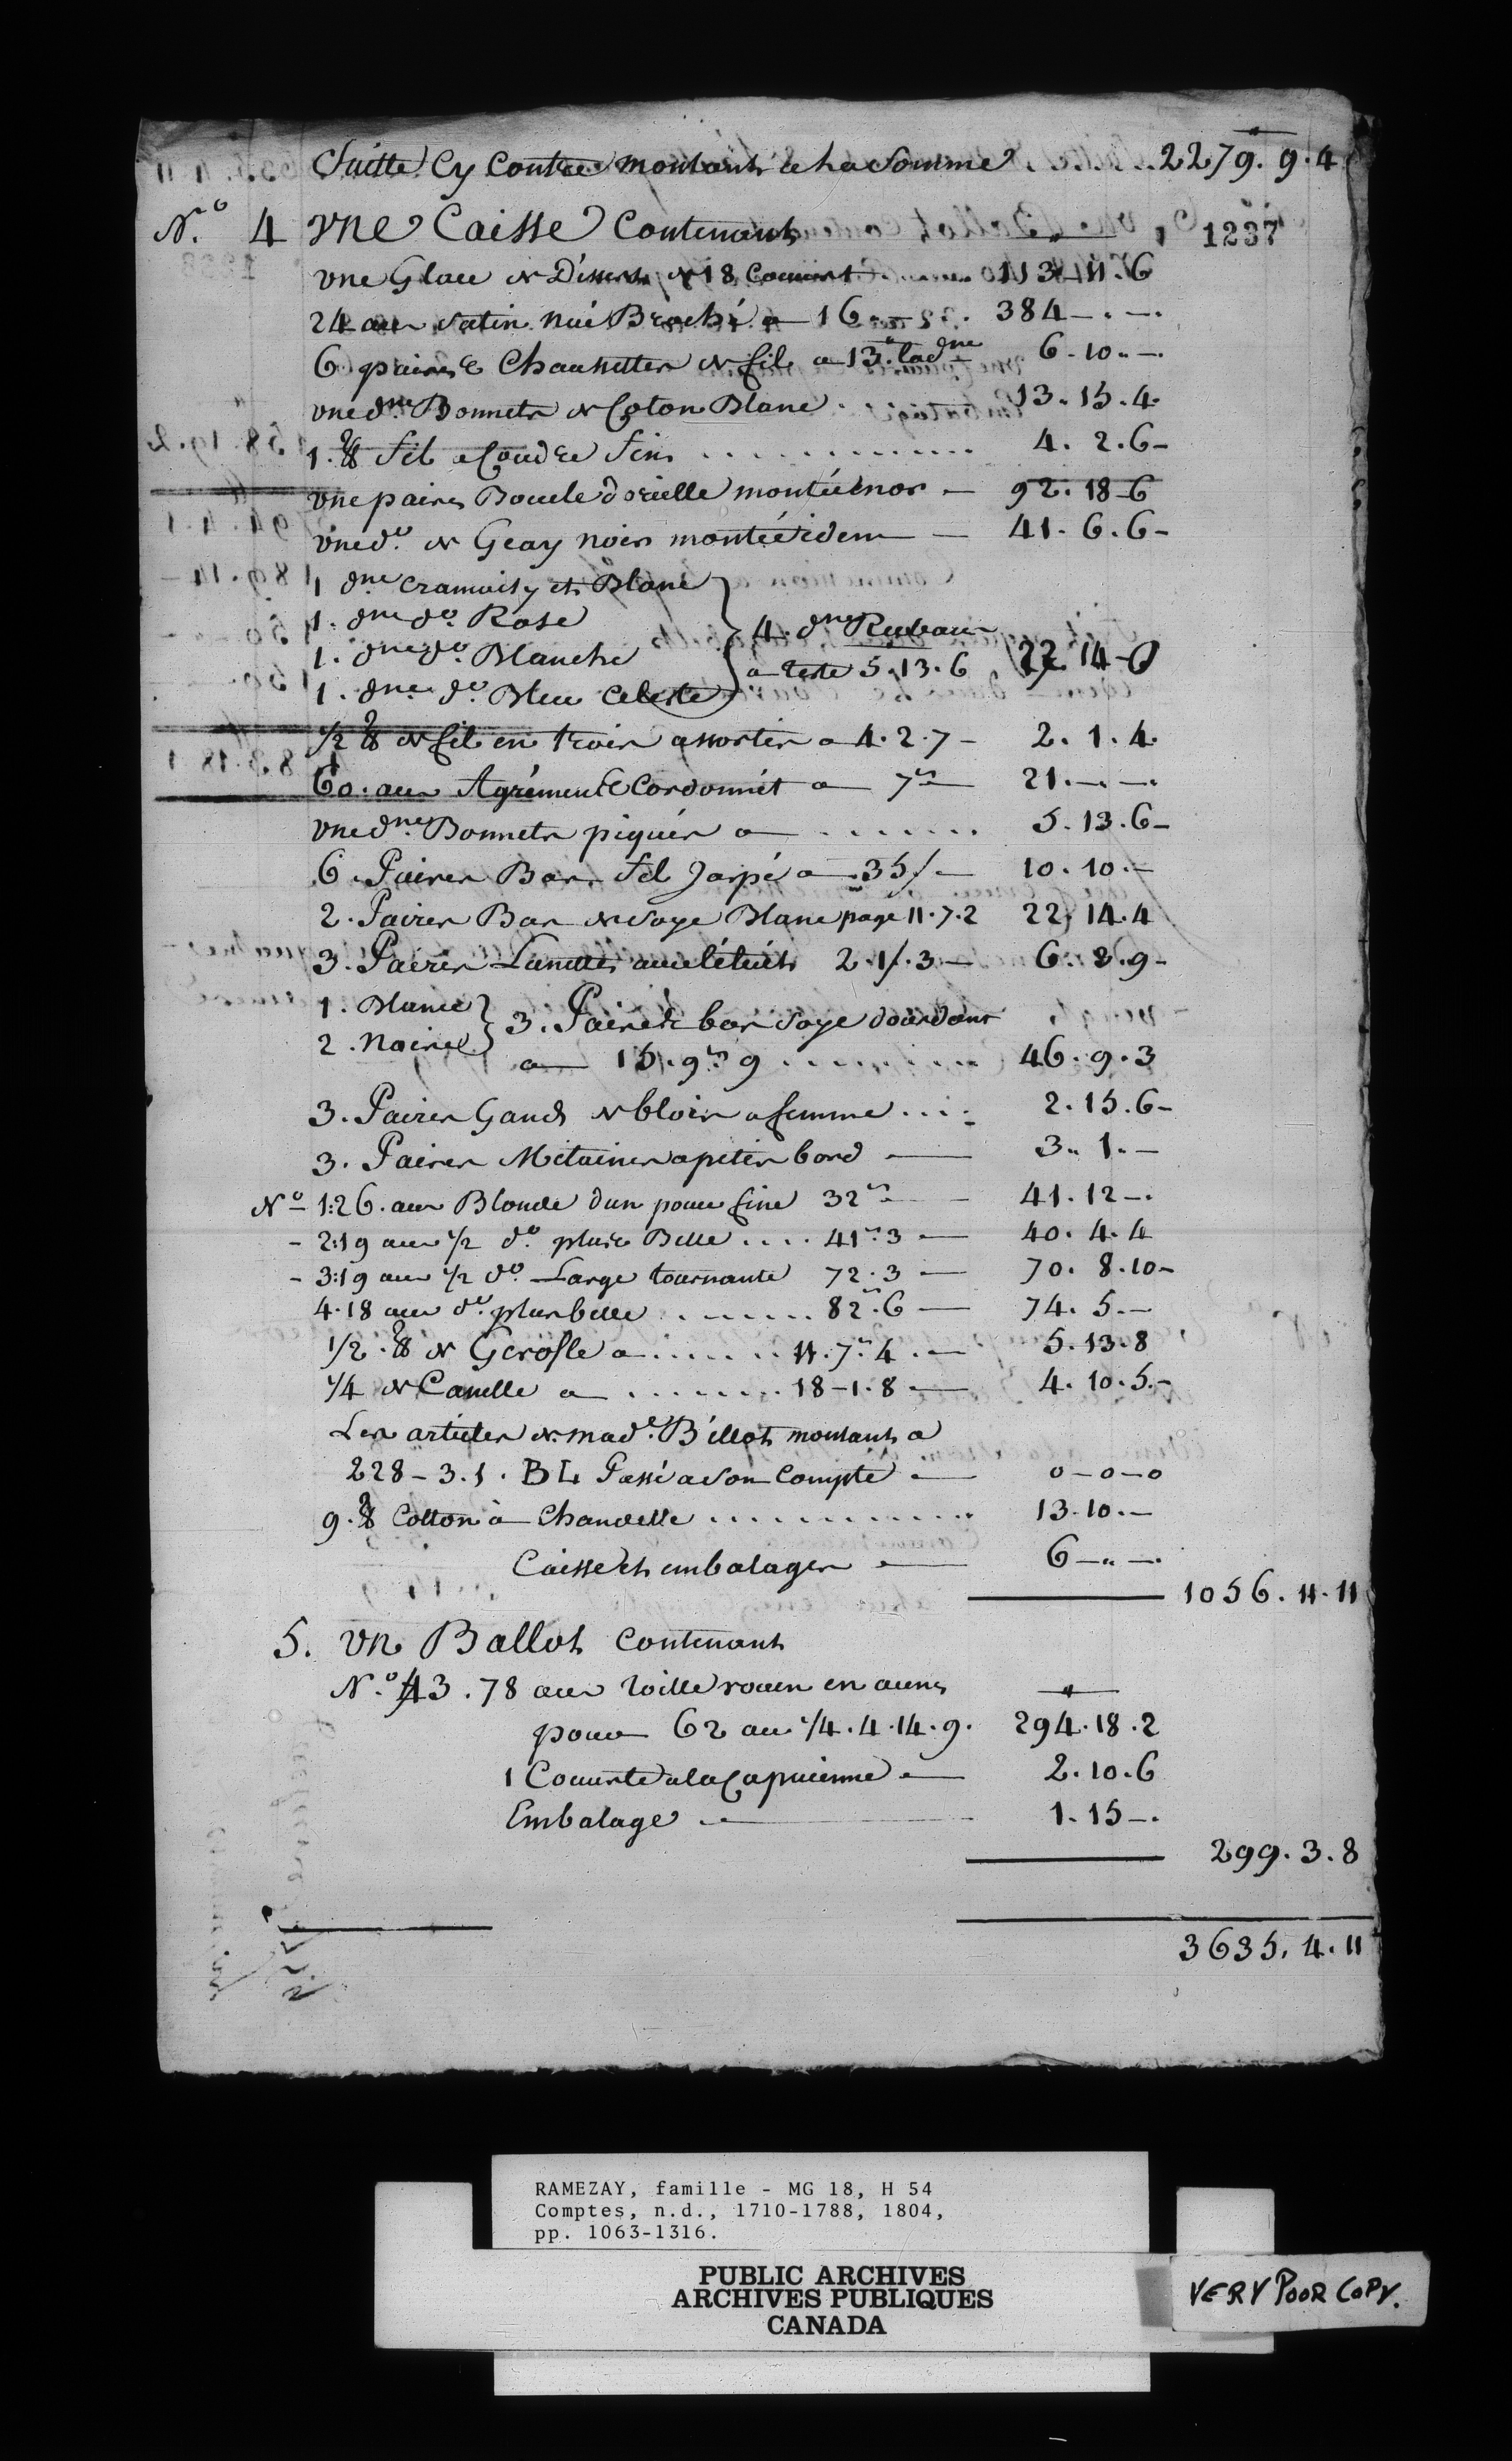 Suitte Cy Contre montant a La Somme . 2279. 9. 4
1237
N.º 4 vne Caisse Contenant
vne Glace de Dessert de 18 Couvert 113 - 11. 6
24 aun satin nué Broché a 16 . - . . 384 - . - .
6 paires Chaussettes de fil a 13.# la dne 6 - 10 . -
vne dne Bonnets de Coton Blanc . 13. 15. 4.
1. ℔ fil a Coudre fin . . . . . . . . . 4. 2. 6 -
vne paires Boucle doreille montée en or - 92. 18 - 6
vne dº. de Geay noir montée idem - 41. 6. 6 -
1 dne cramoisy et Blanc
1. dne dº. Rose
1. dne dº. Blanche
1. dne dº. Bleu Celeste
4. dne Rubans
a teste 5. 13. 6 22 14 - 0
1/2 ℔ de fil en trois assortis a 4. 2. 7 - 2. 1. 4.
60. aun Agrément Cordonnét a 7s - 21. - . -
vne dne Bonnets piqués a . . . . . . . 5. 13. 6 -
6. Paires Bas fil Jaspé a 35/ - 10. 10. -
2. Paires Bas de soye Blanc page 11. 7. 2 22, 14. 4
3. Paires Lunettes avec létuit 2. 1/. 3 - 6. 3. 9 -
1. Blanc
2. Noire
3. Paire de bas soye dourdant
a 15. 9s 9 . . . . . . . . . 46. 9. 3
3. Paires Gands de bloir a femme . . . . 2. 15. 6 -
3. Paires Mitaines a petis bord - 3. 1. -
Nº 1: 26. aun Blonde dun pouce fine 32s - 41. 12 - .
- 2: 19 aun 1/2 dº. plus Belle . . . . 41s 3 - 40. 4. 4
- 3: 19 aun 1/2 dº. Large tournante 72. 3 - 70. 8. 10 -
4. 18 aun dº. plus belle . . . . . . . 82s. 6 - 74. 5. -
1/2. ℔ de Gerofle a . . . . . . . 11. 7s 4 . - 5. 13. 8
1/4 de Canelle a . . . . . . . . 18 - 1. 8 - 4. 10. 5. -
Les articles de made. Billot montant a
228 - 3. 1. BL Passé a son Compte - 0 - 0 - 0
9. ℔ Cotton à Chandelle . . . . . . . . . . 13. 10. -
Caisse et embalages - 6 - . - .
1056. 11. 11
5. vn Ballot Contenant
N.º 43. 78 aun toille rouen en aunes
pour 62 au 1/4. 4. 14. 9. 294. 18. 2
1 Couverte a la Capucienne - 2. 10. 6
Embalage - 1. 15 - .
299. 3. 8
3635. 4. 11
RAMEZAY, famille - MG 18, H 54
Comptes, n.d., 1710-1788, 1804,
pp. 1063-1316.
PUBLIC ARCHIVES
ARCHIVES PUBLIQUES
CANADA
VERY POOR COPY.